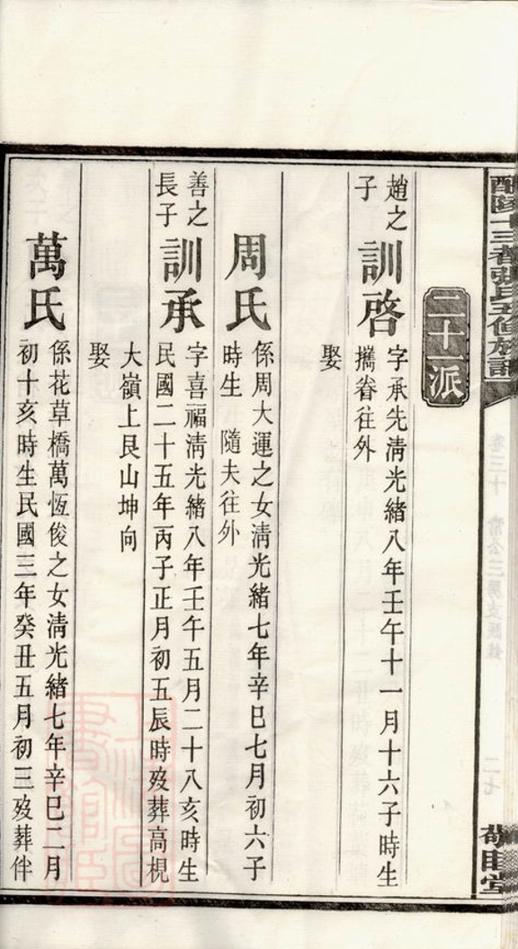 二十一派
趙之子
訓啓
字承先清光緒八年壬午十一月十六子時生
攜眷往外
娶
周氏
係周大運之女清光緒七年辛巳七月初六子
時生 隨夫往外
善之長子
訓承
字喜福清光緒八年壬午五月二十八亥時生
民國二十五年丙子正月初五辰時歿葬高梘
大嶺上艮山坤向
娶
萬氏
係花草橋萬恆俊之女清光緒七年辛巳二月
初十亥時生民國三年癸丑五月初三歿葬伴